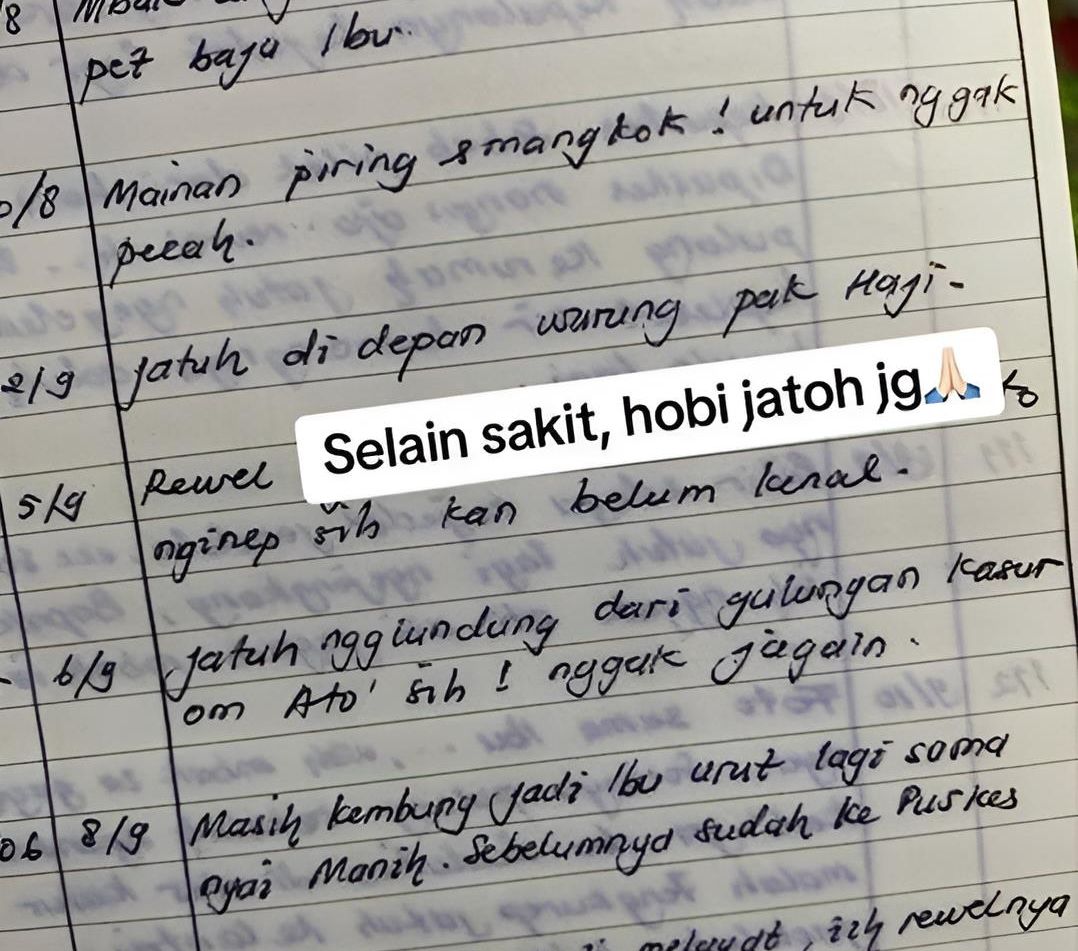 8
pet baju Ibu.
/8 Mainan piring & mangkok ! untuk nggak
pecah.
2/9 Jatuh di depan warung pak Haji.
Selain sakit, hobi jatoh jg🙏🏻
5/9 Rewel
nginep sih kan belum kenal.
6/9 Jatuh ngglundung dari gulungan kasur
om Ato' sih ! nggak jagain.
06 8/9 Masih kembung jadi Ibu urut lagi sama
nyai Manih. Sebelumnya sudah ke Puskes
melayat, iih rewelnya